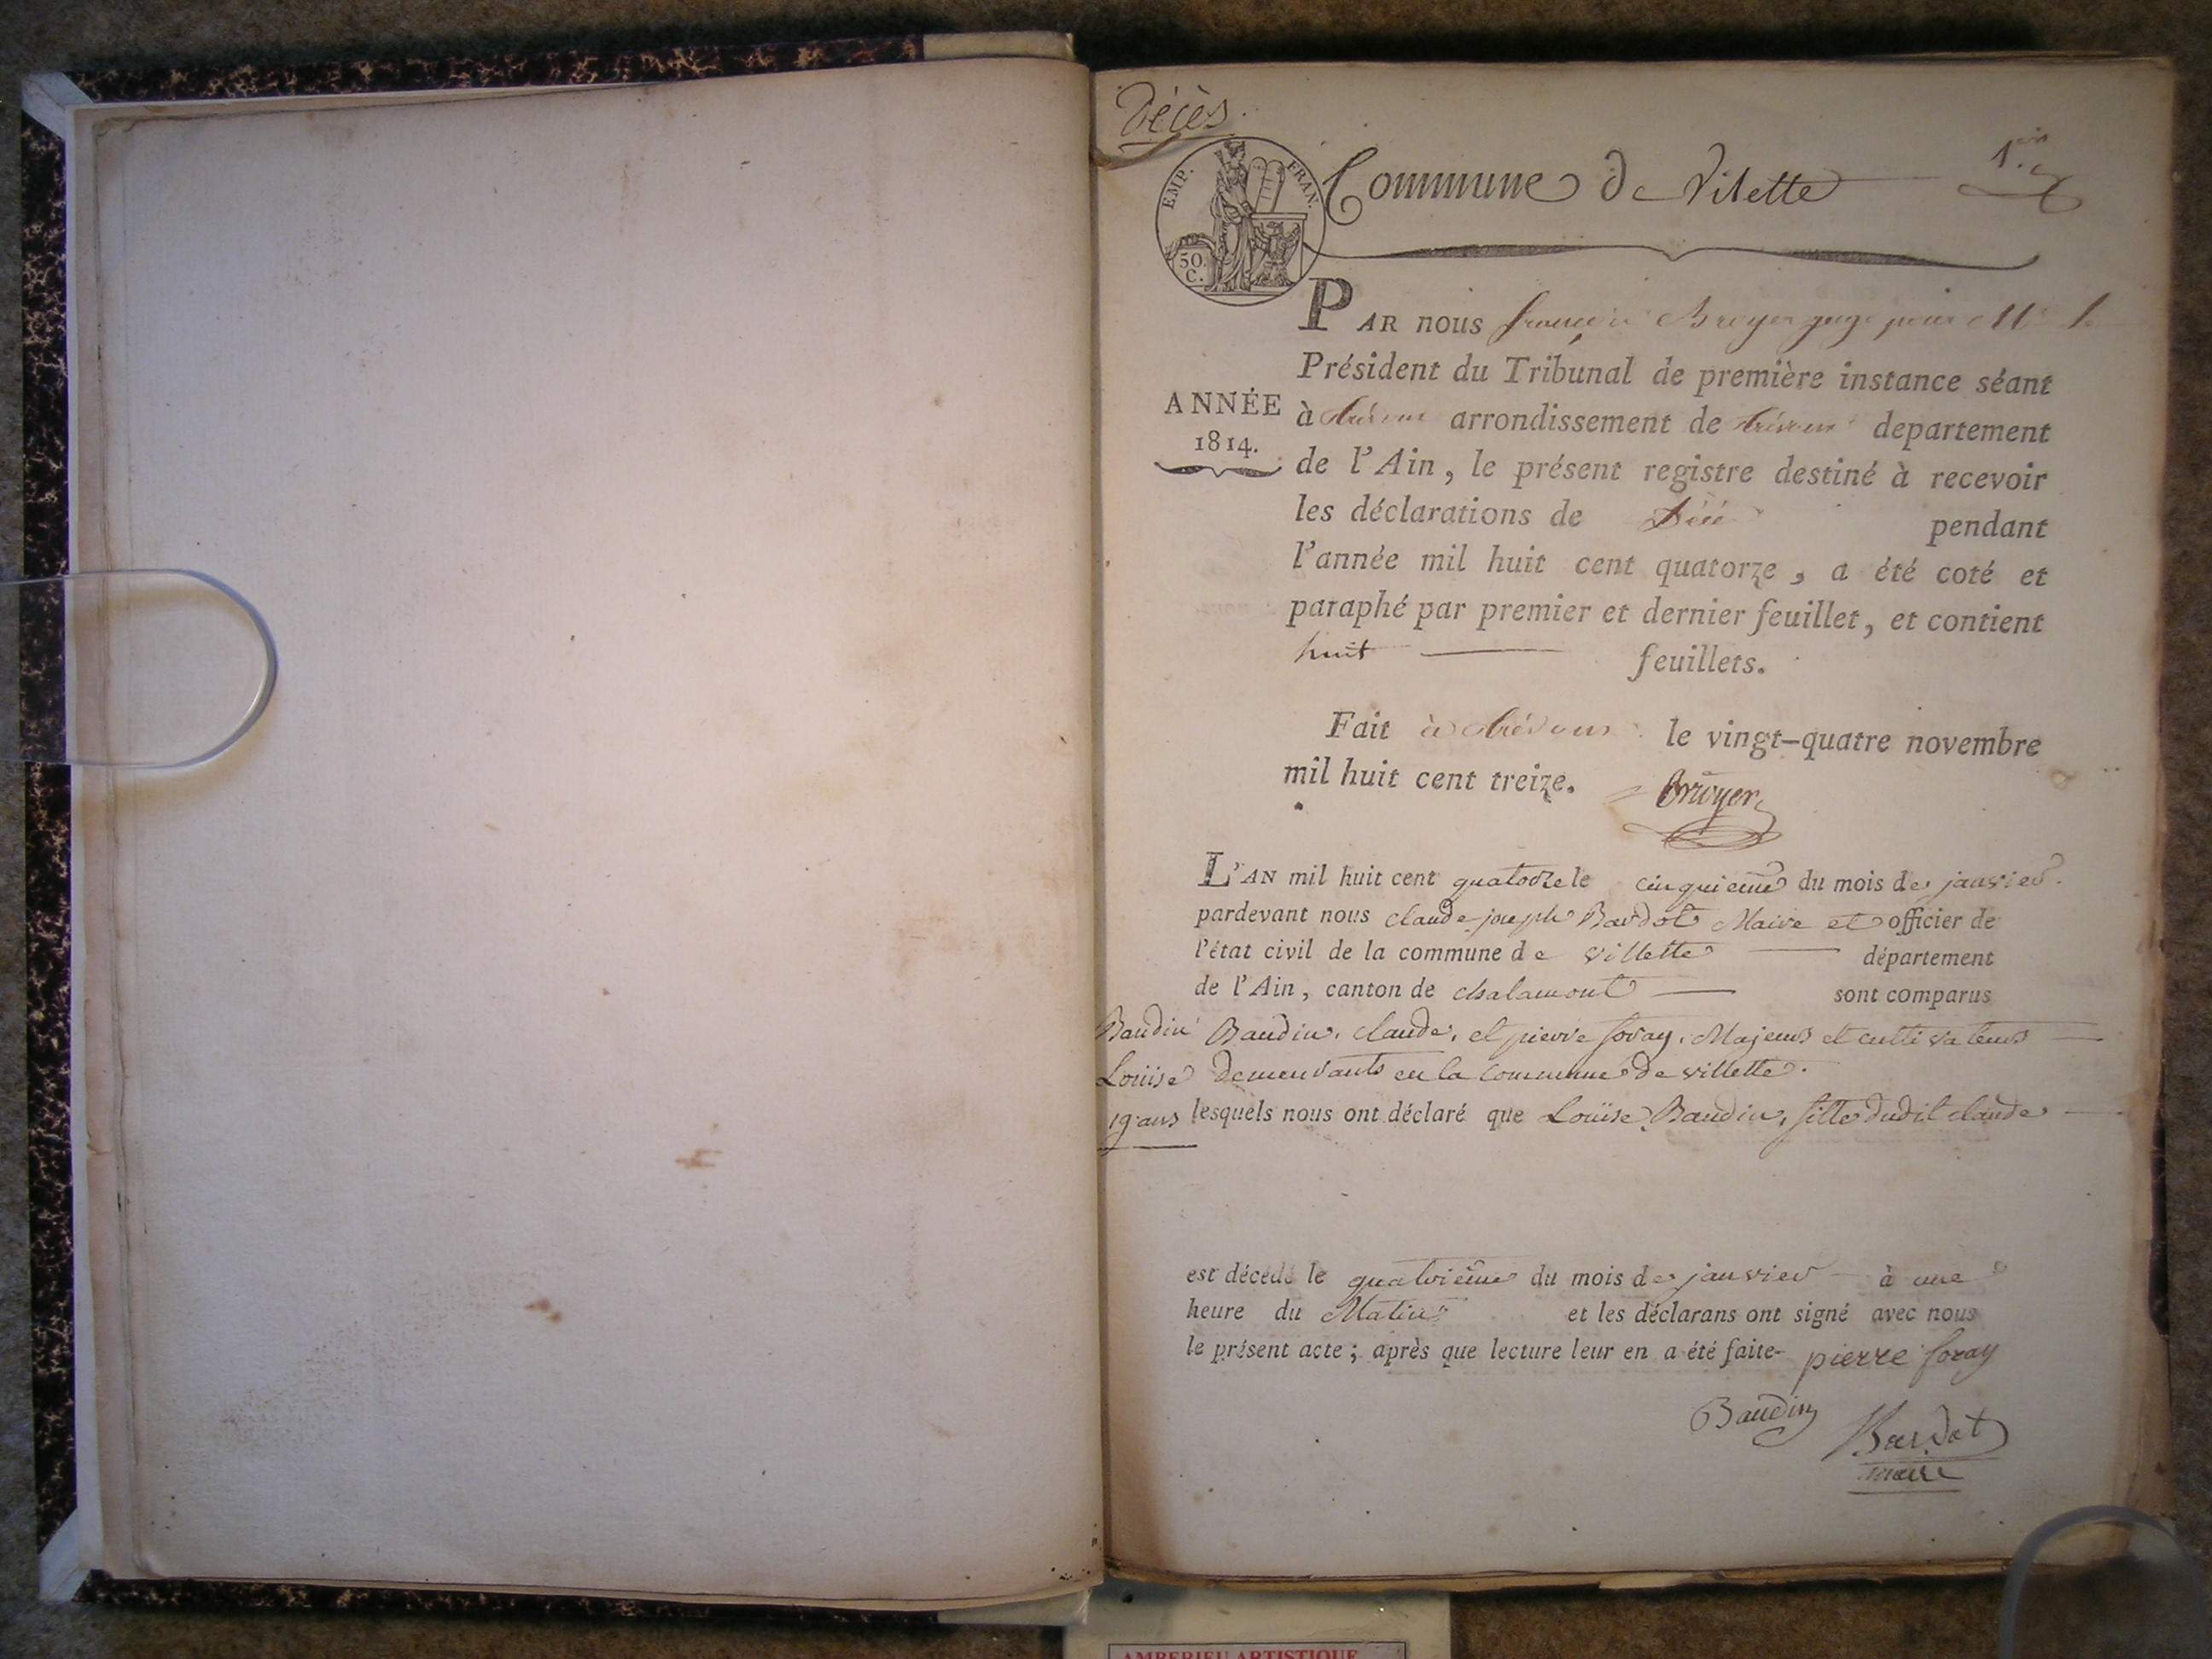 Décès.
EMP. FRAN.
50.
C.
Commune de Vilette
1.er
PAR nous françois Bruyer juge pour Mr. le
Président du Tribunal de première instance séant
ANNÉE
1814.
à trévoux arrondissement de trévoux departement
de l'Ain, le présent registre destiné à recevoir
les déclarations de Décè pendant
l'année mil huit cent quatorze, a été coté et
paraphé par premier et dernier feuillet, et contient
huit feuillets.
Fait à trévoux le vingt-quatre novembre
mil huit cent treize. Bruyer
L'AN mil huit cent quatorze le cinquieme du mois de janvier.
pardevant nous claude joseph Bardot Maire et officier de
l'état civil de la commune de villette département
de l'Ain, canton de chalamont sont comparus
Baudin
Louise
19 ans
Baudin, claude, et pierre foray, Majeurs et cultivateurs
demeurants en la commune de villette.
lesquels nous ont déclaré que Louïse Baudin, fille dudit claude
est décédé le quatrieme du mois de janvier à une
heure du Matin et les déclarans ont signé avec nous
le présent acte ; après que lecture leur en a été faite- pierre foray
Baudin Bardot
maire
AMBERIEU ARTISTIQUE